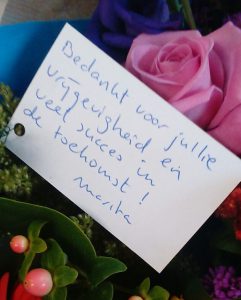 Bedankt voor jullie
vrijgevigheid en
veel succes in
de toekomst!
Marita